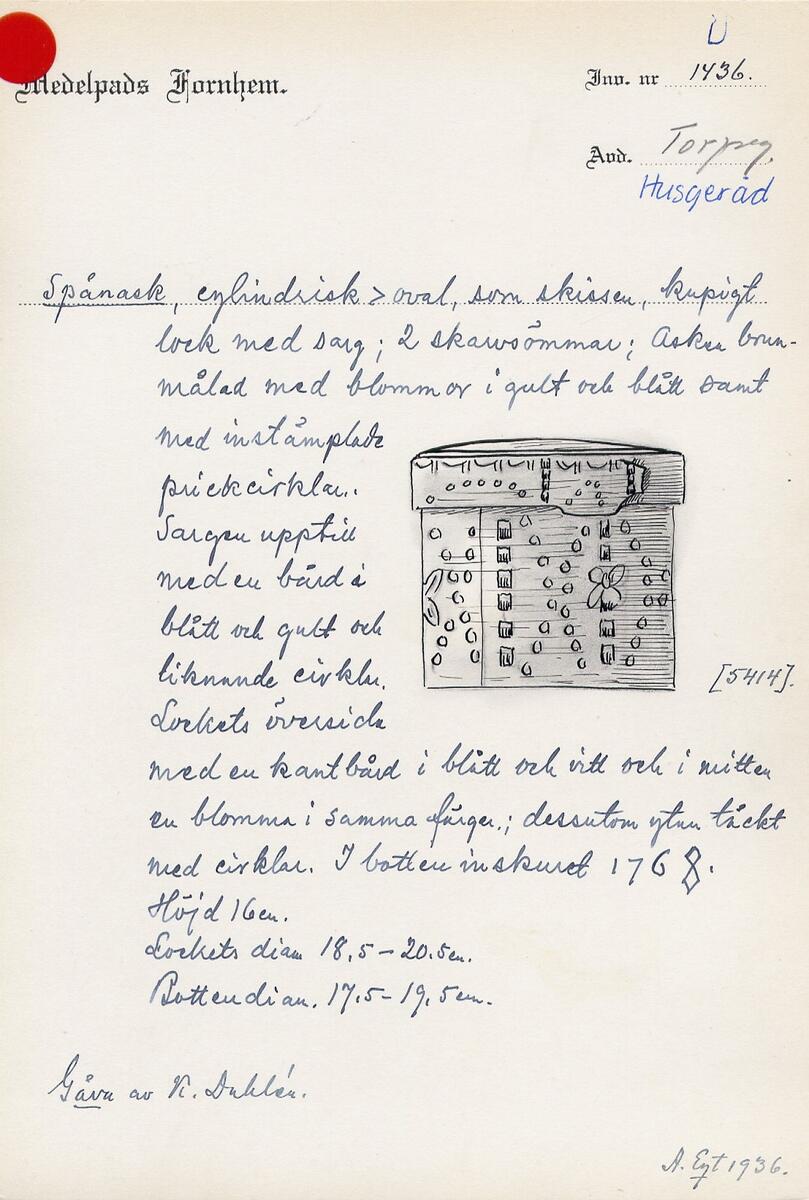 U
Medelpads Fornhem.
Inv. nr 1436.
Avd. Torpeg.
Husgeråd
Spånask, cylindrisk > oval, som skissen, kupigt
lock med sarg; 2 skarvsömmar; Asken brun-
målad med blommor i gult och blått samt
med instämplade
prickcirklar.
Sargen upptill
med en bård i
blått och gult och
liknande cirklar.
[5414].
Lockets översida
med en kantbård i blått och vitt och i mitten
en blomma i samma färger.; dessutom ytan täckt
med cirklar. I botten inskuret 1768.
Höjd 16 cm.
Lockets diam 18,5–20.5cm.
Bottendiam. 17.5–19,5cm.
Gåva av K. Dahlén.
A. Eyt 1936.